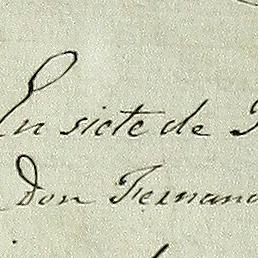 En siete de
Don Fernand